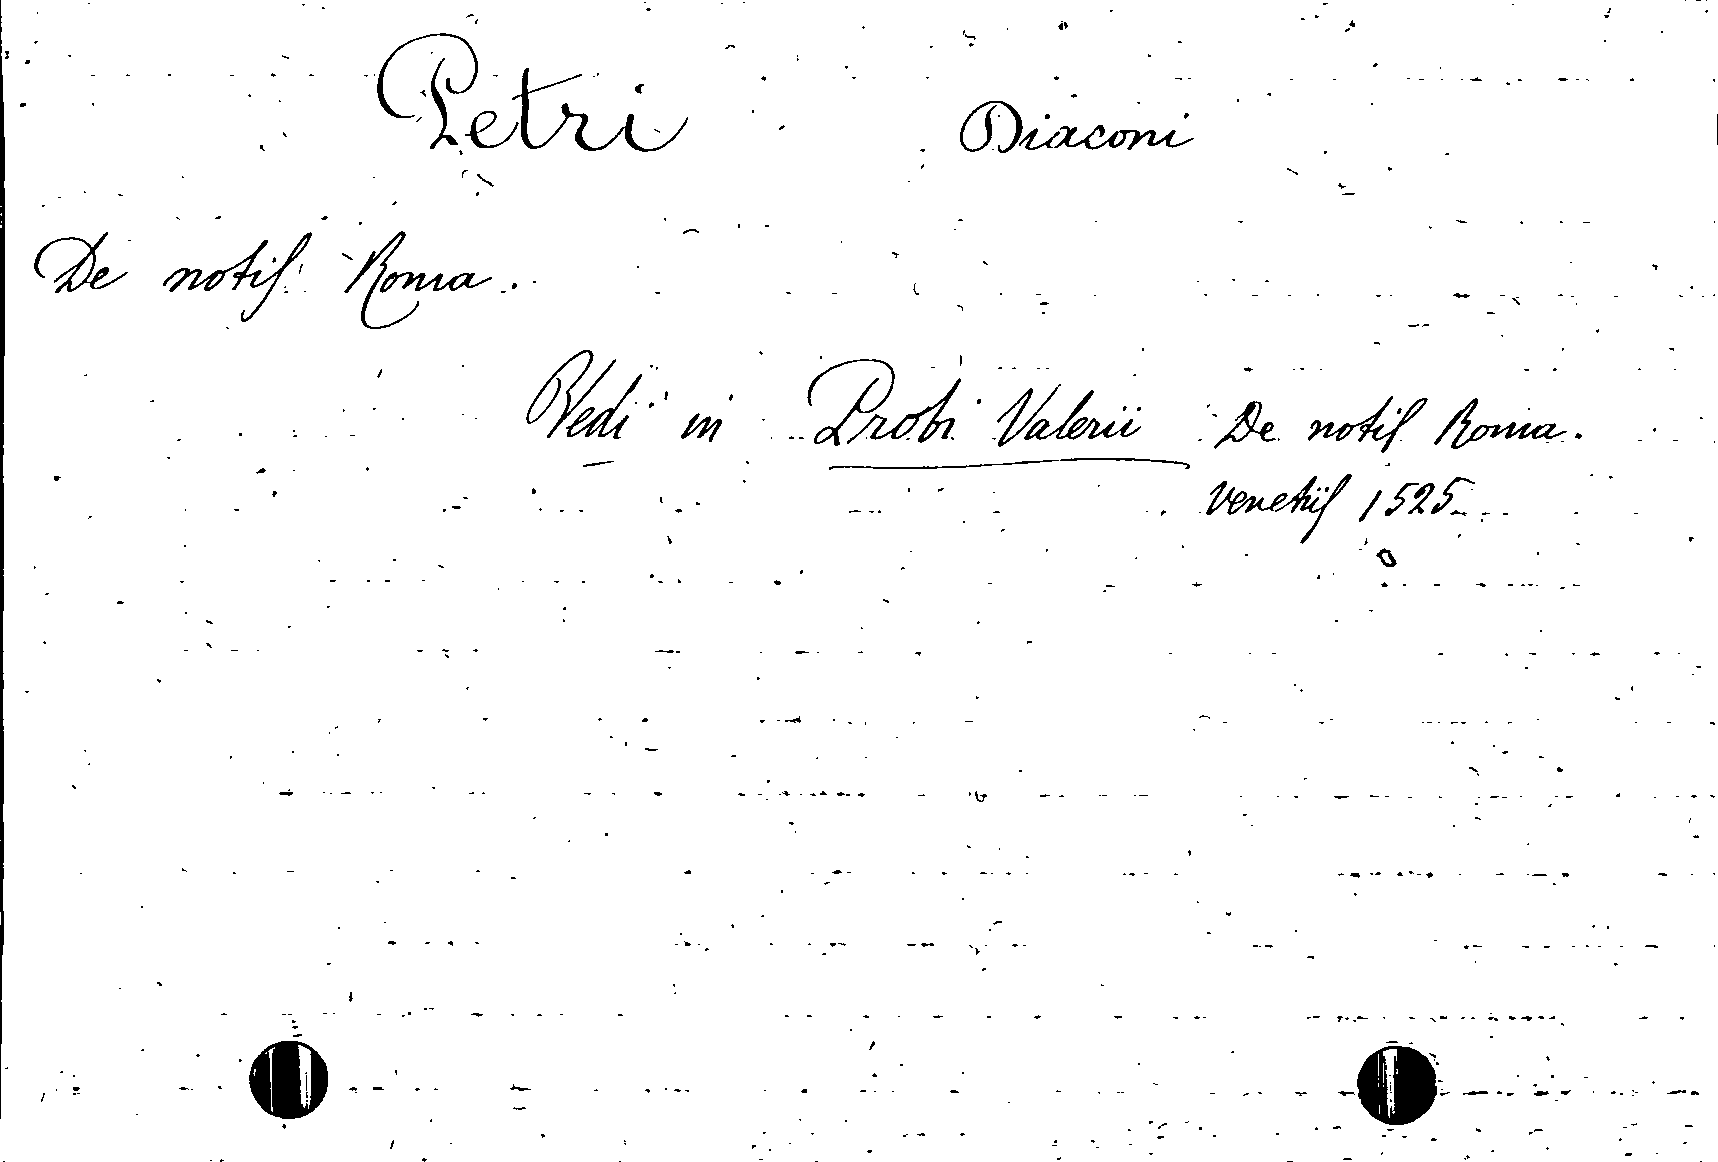 Petri Diaconi
De notis Roma.
Vedi in Probi Valerii De notis Roma.
Venetiis 1525